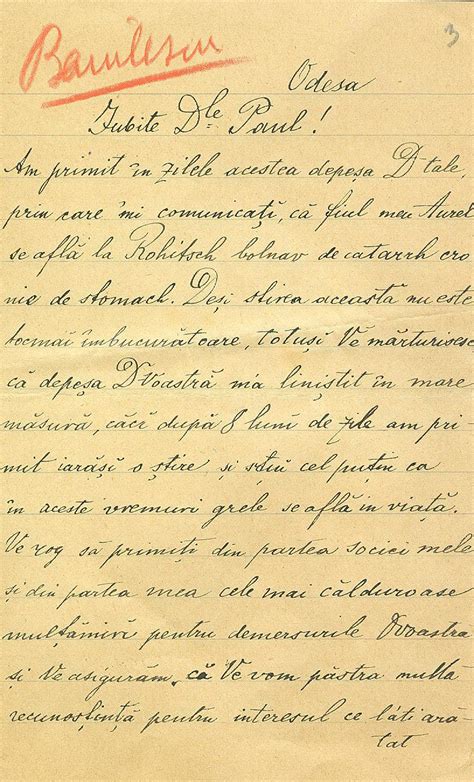 Bacilescu
3
Odesa
Iubite Dle Paul!
Am primit în zilele acestea depeșa D tale,
prin care 'mi comunicați, că fiul meu Aurel
se află la Rohitsch bolnav de catarrh cro
nic de stomach. Deși știrea aceasta nu este
tocmai îmbucurătoare, totuși Ve mărturisesc
că depeșa DVoastră m'a liniștit în mare
măsură, căci după 8 luni de zile am pri-
mit iarăși o știre, și știu cel puțin ca
în aceste vremuri grele se află in viață.
Ve rog să primiți din partea sociei mele
și din partea mea cele mai călduroase
mulțămiri pentru demersurile DVoastra
și Ve asigurăm, că Ve vom păstra multa
recunoștință pentru interesul ce l'ati ară-
tat